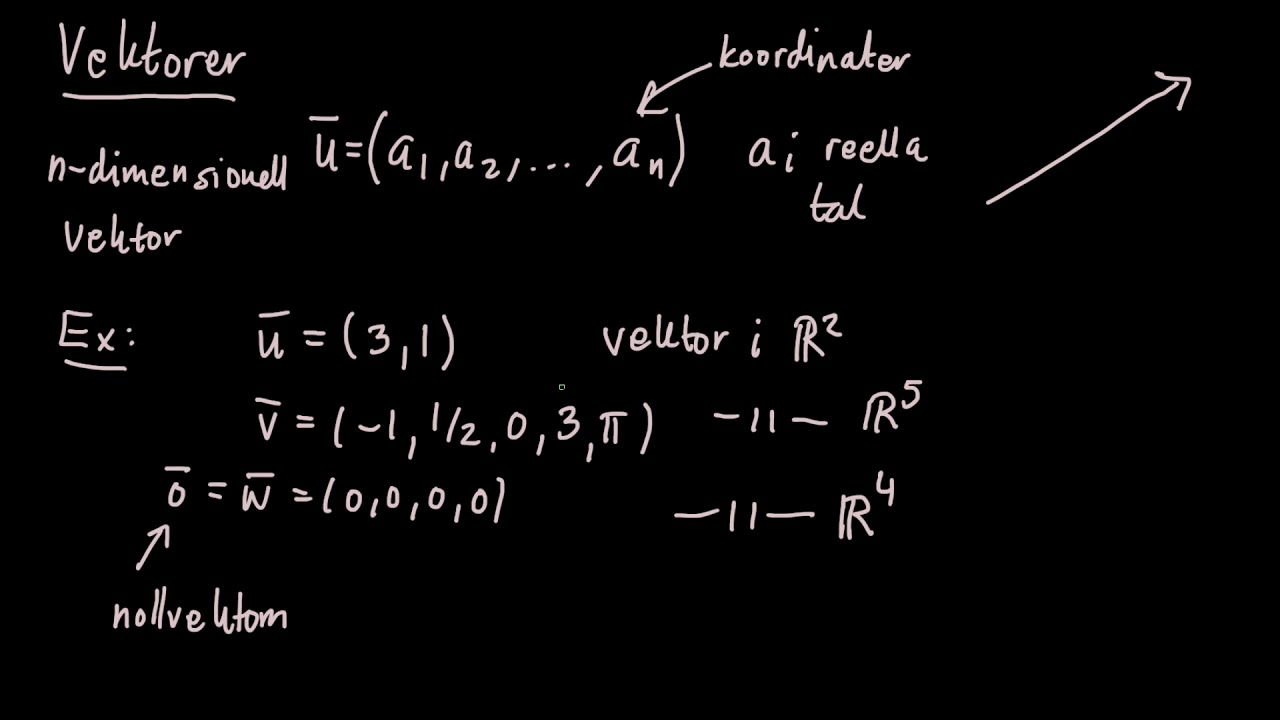 Vektorer
koordinater
n-dimensionell ū=(a₁,a₂,...,aₙ) aᵢ reella
vektor tal
Ex: ū = (3,1) vektor i ℝ²
v̄ = (-1, 1/2, 0, 3, π) –||– ℝ⁵
ō = w̄ = (0,0,0,0) –||– ℝ⁴
nollvektorn